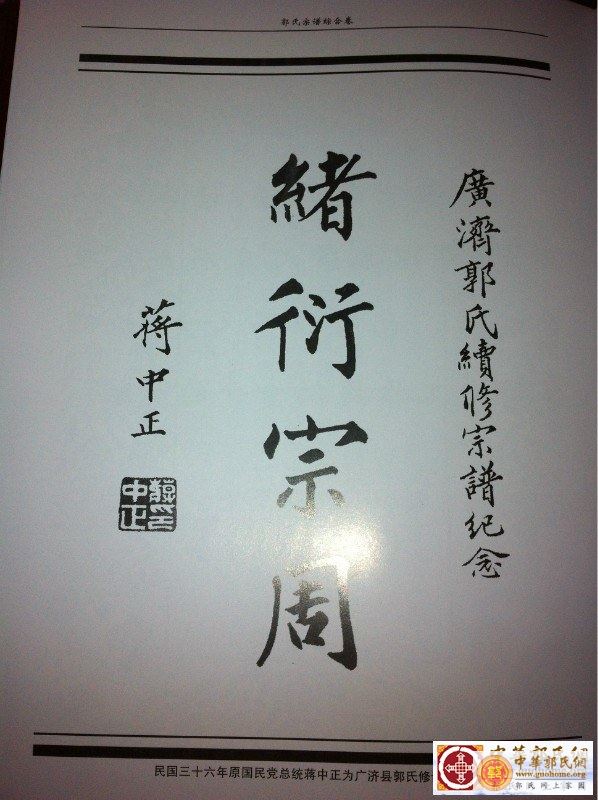 郭氏宗谱综合卷
廣濟郭氏續修宗譜纪念
緒衍宗周
蔣中正
蔣印
中正
民国三十六年原国民党总统蒋中正为广济县郭氏修
中华郭氏網
中華郭氏網
www.guohome.org
郭氏网上家園